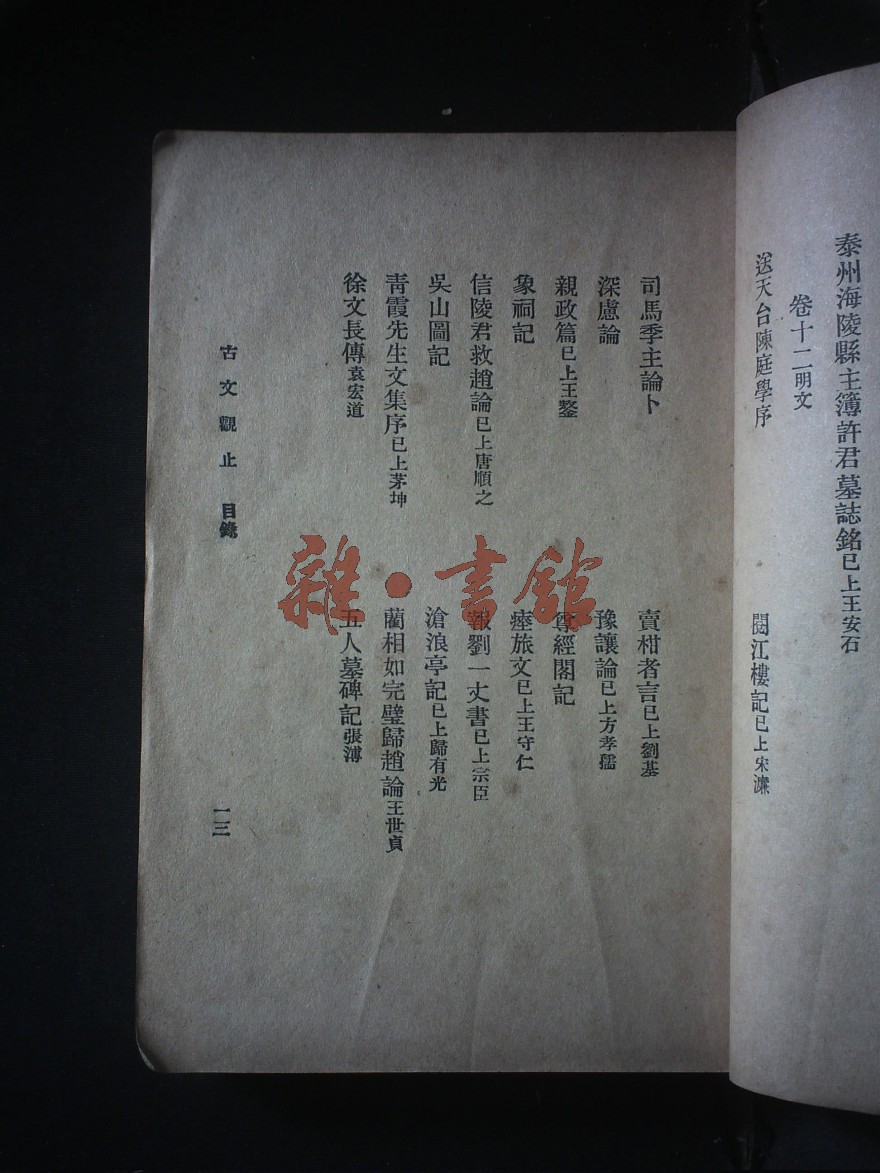 泰州海陵縣主簿許君墓誌銘已上王安石
卷十二明文
送天台陳庭學序
閱江樓記已上宋濂
司馬季主論卜
賣柑者言已上劉基
深慮論
豫讓論已上方孝孺
親政篇已上王鏊
尊經閣記
象祠記
瘞旅文已上王守仁
信陵君救趙論已上唐順之
報劉一丈書已上宗臣
吳山圖記
滄浪亭記已上歸有光
青霞先生文集序已上茅坤
藺相如完璧歸趙論王世貞
徐文長傳袁宏道
五人墓碑記張溥
古文觀止 目錄
一三
雜·書館